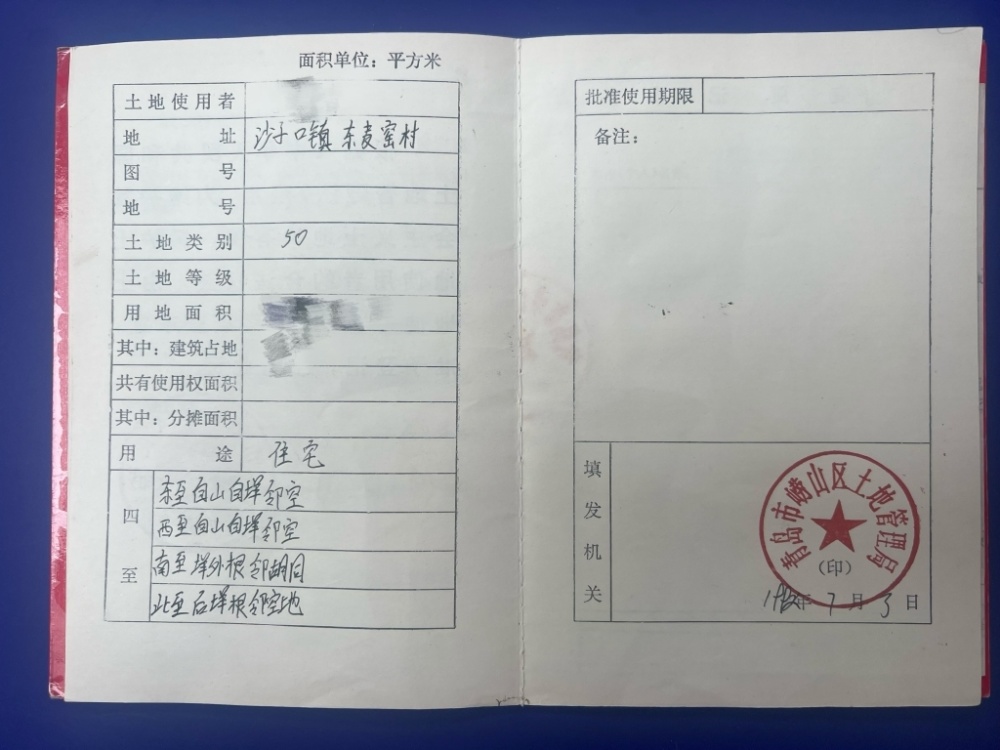 面积单位：平方米
土地使用者
地址 沙子口镇东麦窑村
图号
地号
土地类别 50
土地等级
用地面积
其中：建筑占地
共有使用权面积
其中：分摊面积
用途 住宅
四至
东至自山自垟邻空
西至自山自垟邻空
南至垟外根邻胡同
北至后垟根邻空地
批准使用期限
备注：
填发机关
青岛市崂山区土地管理局
（印）
年 7 月 3 日